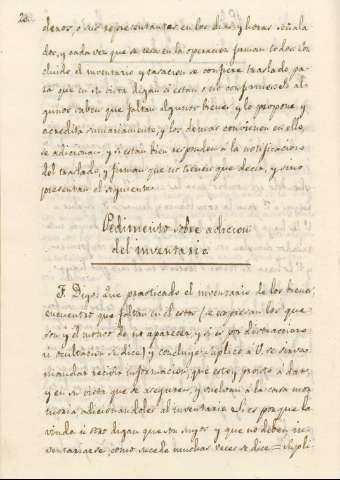 28.
deros, ó sus representantes en los dias y horas señala
dos, y cada vez que se cesa en la operacion firman todos. Con
cluido el inventario y tasacion se confiere traslado pa
ra que en su vista digan si están ó no conformes: si al
gunos saben que faltan algunos bienes y lo propone y
acredita sumariamente, y los demas convienen en ello,
se adicionan y si están bien responden á la notificacion
del traslado, y firman que no tienen que decir, y sino
presentan el siguiente.
Pedimento sobre adicion
del inventario
F. Digo: Que practicado el inventario de los bienes,
encuentro que faltan en el estos (se expresan los que
son y el motivo de no aparecer, y si es por distracciones
ú ocultacion se dice) y concluye: suplico á V. se sirva
mandar recibir informacion, que estoy pronto á dar,
y en su vista que se aseguren, y vuelvan á la casa mor
tuoria adicionandoles al inventario. Si es porque la
viuda ú otro digan que son suyos y que no deben in
ventariarse, como sucede muchas veces se dice = Supli